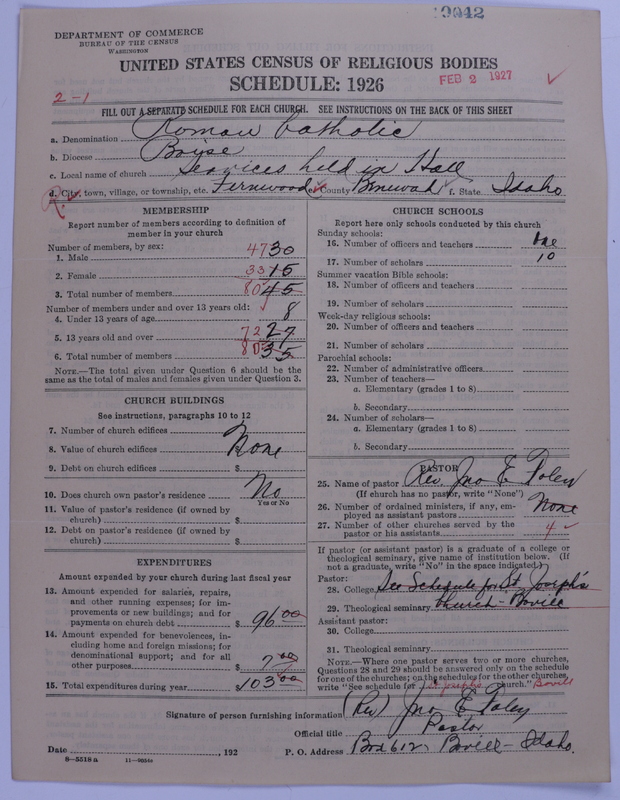 9042
DEPARTMENT OF COMMERCE
BUREAU OF THE CENSUS
WASHINGTON
UNITED STATES CENSUS OF RELIGIOUS BODIES
SCHEDULE: 1926
FEB 2 1927
2-1
FILL OUT A SEPARATE SCHEDULE FOR EACH CHURCH. SEE INSTRUCTIONS ON THE BACK OF THIS SHEET
a. Denomination Roman Catholic
b. Diocese Boise
c. Local name of church Services held in Hall
R. d. City, town, village, or township, etc. Fernwood e. County Benewah f. State Idaho.
MEMBERSHIP
Report number of members according to definition of
member in your church
Number of members, by sex:
1. Male 47 30
2. Female 33 15
3. Total number of members 80 45
Number of members under and over 13 years old:
4. Under 13 years of age 8
5. 13 years old and over 72 27
6. Total number of members 80 35
NOTE.—The total given under Question 6 should be the
same as the total of males and females given under Question 3.
CHURCH BUILDINGS
See instructions, paragraphs 10 to 12
7. Number of church edifices
8. Value of church edifices None
9. Debt on church edifices $
10. Does church own pastor's residence No
Yes or No
11. Value of pastor's residence (if owned by
church) $
12. Debt on pastor's residence (if owned by
church) $
EXPENDITURES
Amount expended by your church during last fiscal year
13. Amount expended for salaries, repairs,
and other running expenses; for im-
provements or new buildings; and for
payments on church debt $ 96 00
14. Amount expended for benevolences, in-
cluding home and foreign missions; for
denominational support; and for all
other purposes $ 7 00
15. Total expenditures during year $ 103 00
CHURCH SCHOOLS
Report here only schools conducted by this church
Sunday schools:
16. Number of officers and teachers One
17. Number of scholars 10
Summer vacation Bible schools:
18. Number of officers and teachers
19. Number of scholars
Week-day religious schools:
20. Number of officers and teachers
21. Number of scholars
Parochial schools:
22. Number of administrative officers
23. Number of teachers—
a. Elementary (grades 1 to 8)
b. Secondary
24. Number of scholars—
a. Elementary (grades 1 to 8)
b. Secondary
PASTOR
25. Name of pastor Rev. Jno E Foley
(If church has no pastor, write "None")
26. Number of ordained ministers, if any, em-
ployed as assistant pastors None
27. Number of other churches served by the
pastor or his assistants 4
If pastor (or assistant pastor) is a graduate of a college or
theological seminary, give name of institution below. (If
not a graduate, write "No" in the space indicated)
Pastor:
28. College See Schedule for St Joseph's
29. Theological seminary Church-Bovill
Assistant pastor:
30. College
31. Theological seminary
NOTE.—Where one pastor serves two or more churches,
Questions 28 and 29 should be answered only on the schedule
for one of the churches; on the schedules for the other churches,
write "See schedule for St Josephs church." Bovill
Signature of person furnishing information (Rev) Jno E Foley
Official title Pastor
Date , 192
P. O. Address Box 612, Bovill-Idaho.
8—5518 a 11—9054e